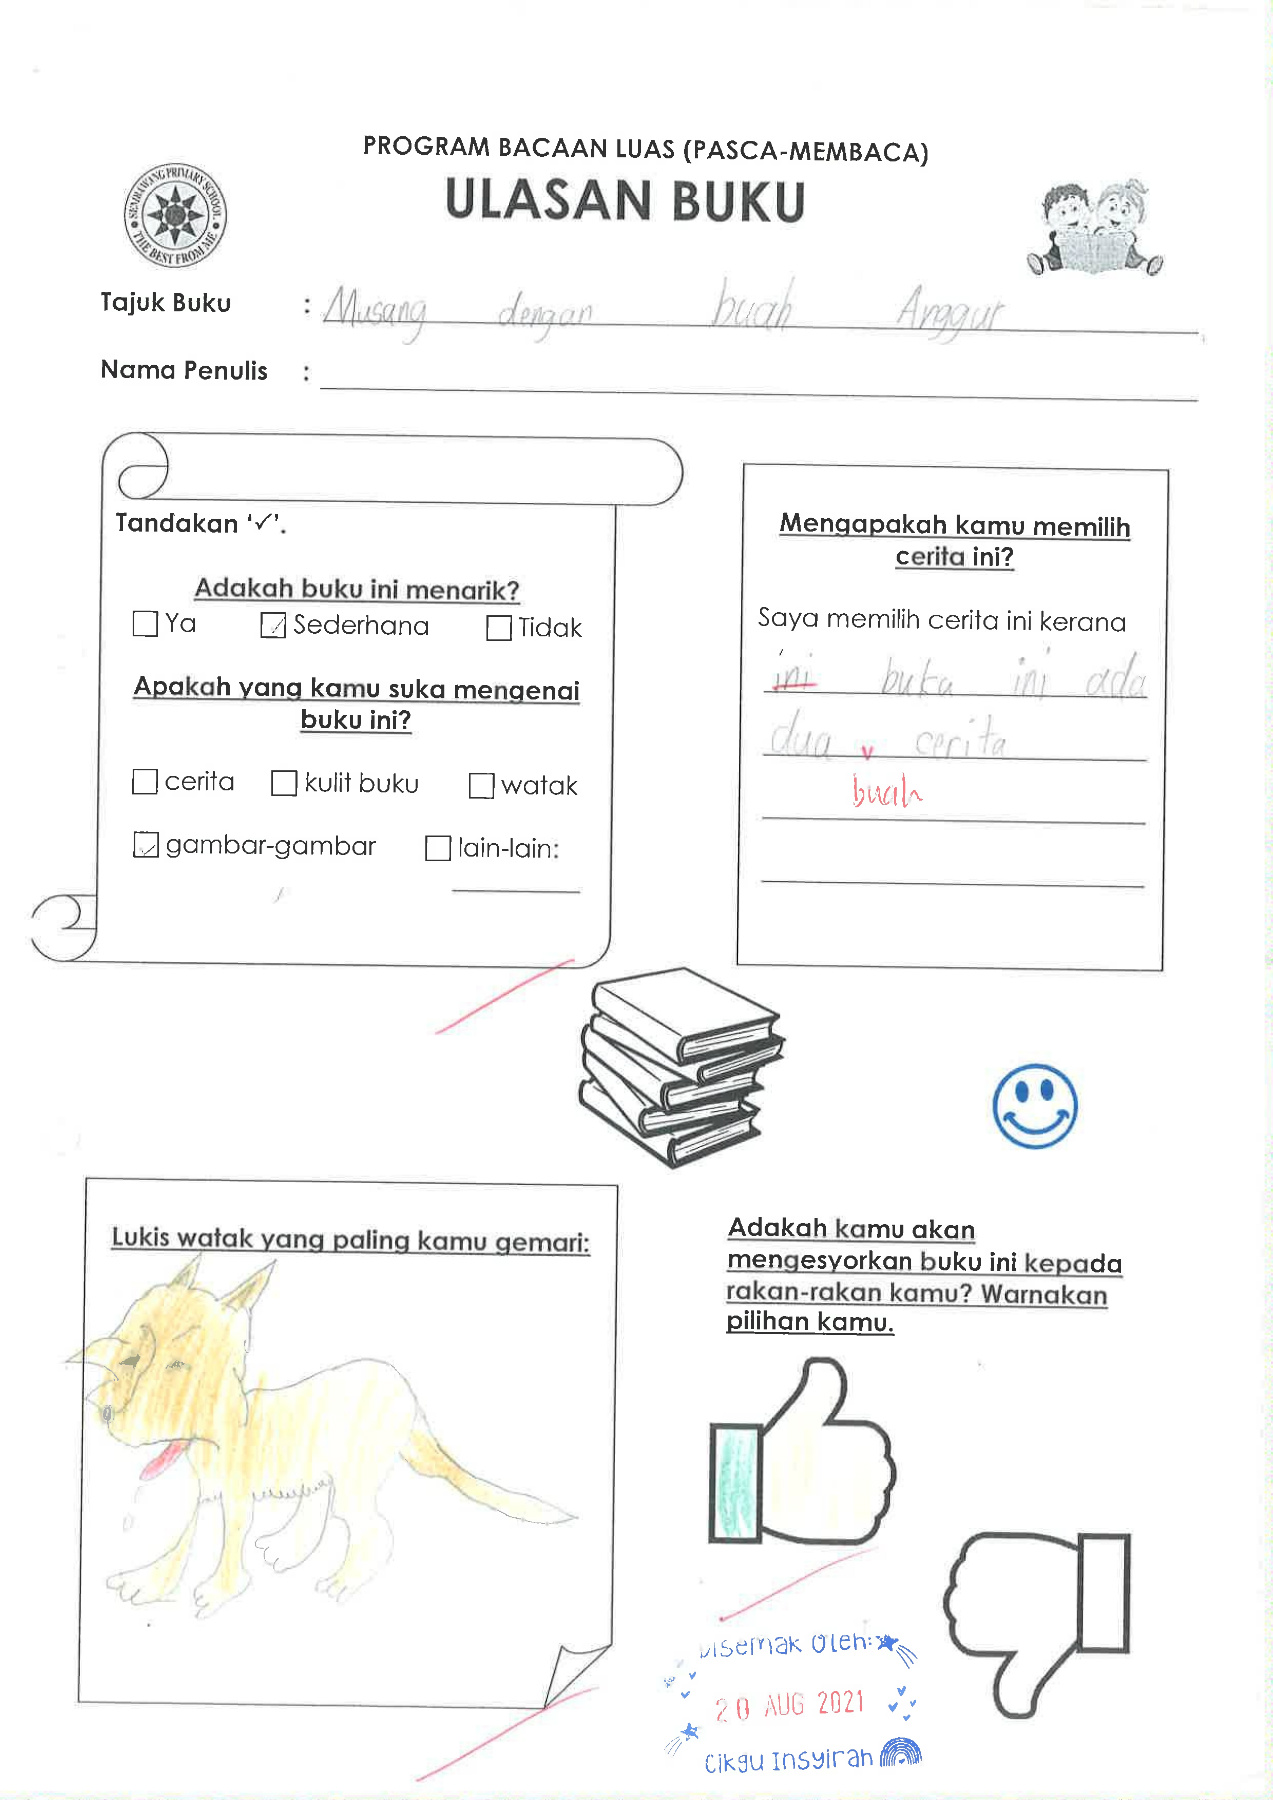 PROGRAM BACAAN LUAS (PASCA-MEMBACA)
ULASAN BUKU
SEMBAWANG PRIMARY SCHOOL
THE BEST FROM ME
Tajuk Buku : Musang dengan buah Anggur
Nama Penulis :
Tandakan '✓'.
Adakah buku ini menarik?
Ya Sederhana Tidak
Apakah yang kamu suka mengenai
buku ini?
cerita kulit buku watak
gambar-gambar lain-lain:
Mengapakah kamu memilih
cerita ini?
Saya memilih cerita ini kerana
ini buku ini ada
dua cerita
buah
Lukis watak yang paling kamu gemari:
Adakah kamu akan
mengesyorkan buku ini kepada
rakan-rakan kamu? Warnakan
pilihan kamu.
Disemak Oleh:
20 AUG 2021
Cikgu Insyirah